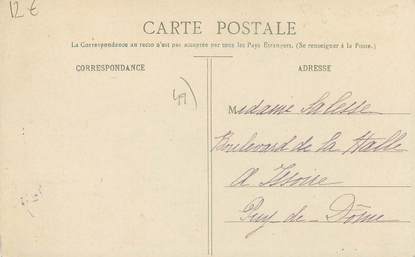 12 €
CARTE POSTALE
La Correspondance au recto n'est pas acceptée par tous les Pays Étrangers. (Se renseigner à la Poste.)
CORRESPONDANCE
ADRESSE
49)
Madame Salesse
Boulevard de La Halle
A Issoire
Puy-de-Dôme